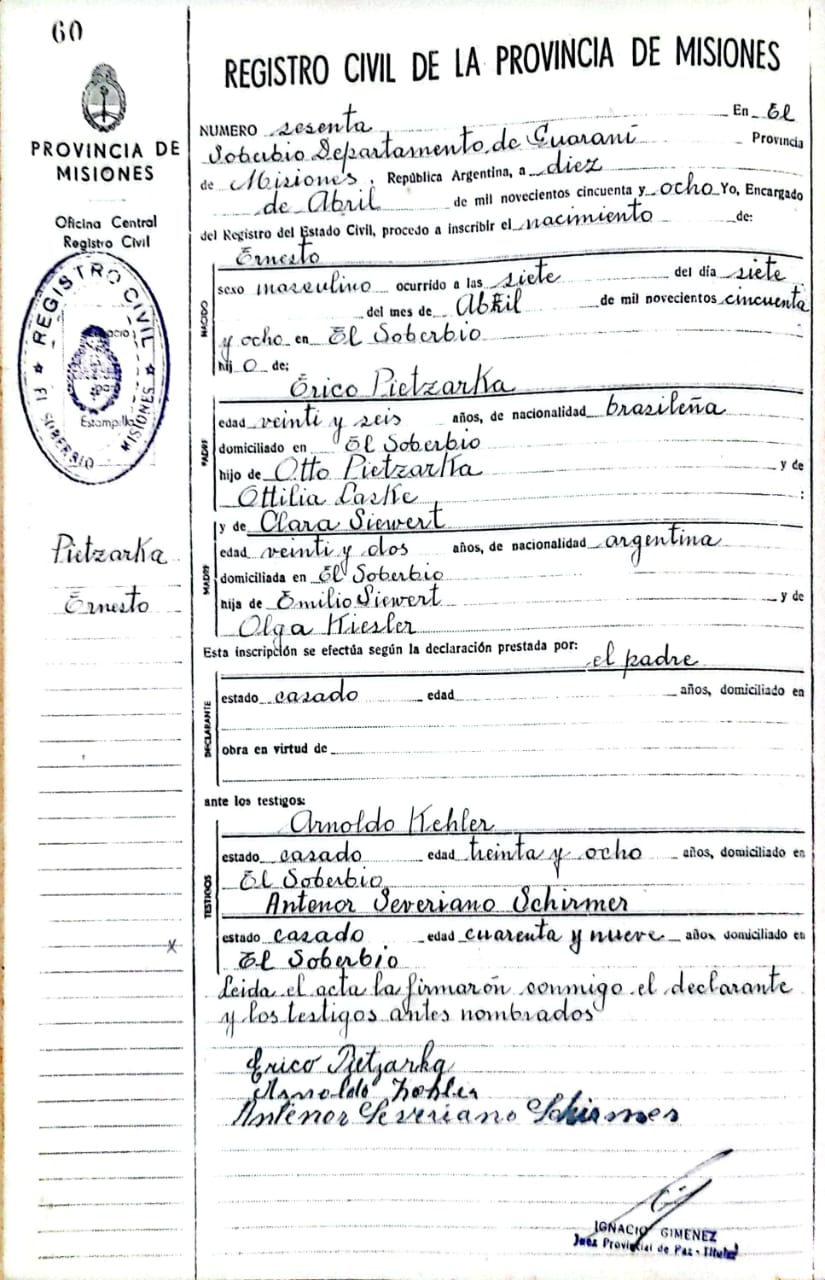 60
PROVINCIA DE
MISIONES
Oficina Central
Registro Civil
REGISTRO CIVIL
El SOBERBIO MISIONES
Estampilla
Pietzarka
Ernesto
x
REGISTRO CIVIL DE LA PROVINCIA DE MISIONES
NUMERO sesenta En El
Soberbio Departamento de Guaraní Provincia
de Misiones. República Argentina, a diez
de Abril de mil novecientos cincuenta y ocho Yo, Encargado
del Registro del Estado Civil, procedo a inscribir el nacimiento de:
NACIDO
Ernesto
sexo masculino ocurrido a las siete del día siete
del mes de Abril de mil novecientos cincuenta
y ocho en El Soberbio
hij o de:
PADRE
Érico Pietzarka
edad veinti y seis años, de nacionalidad brasileña
domiciliado en El Soberbio
hijo de Otto Pietzarka y de
Ottilia Laske :
MADRE
y de Clara Siewert
edad veinti y dos años, de nacionalidad argentina
domiciliada en El Soberbio
hija de Emilio Siewert y de
Olga Kiesler
Esta inscripción se efectúa según la declaración prestada por: el padre
DECLARANTE
estado casado edad años, domiciliado en
obra en virtud de
ante los testigos:
TESTIGOS
Arnoldo Kehler
estado casado edad treinta y ocho años, domiciliado en
El Soberbio
Antenor Severiano Schirmer
estado casado edad cuarenta y nueve años domiciliado en
El Soberbio
Leida el acta la firmarón conmigo el declarante
y los testigos antes nombrados
Erico Pietzarka
Arnoldo Kohler
Antenor Severiano Schirmer
IGNACIO GIMENEZ
Juez Provincial de Paz - Titular